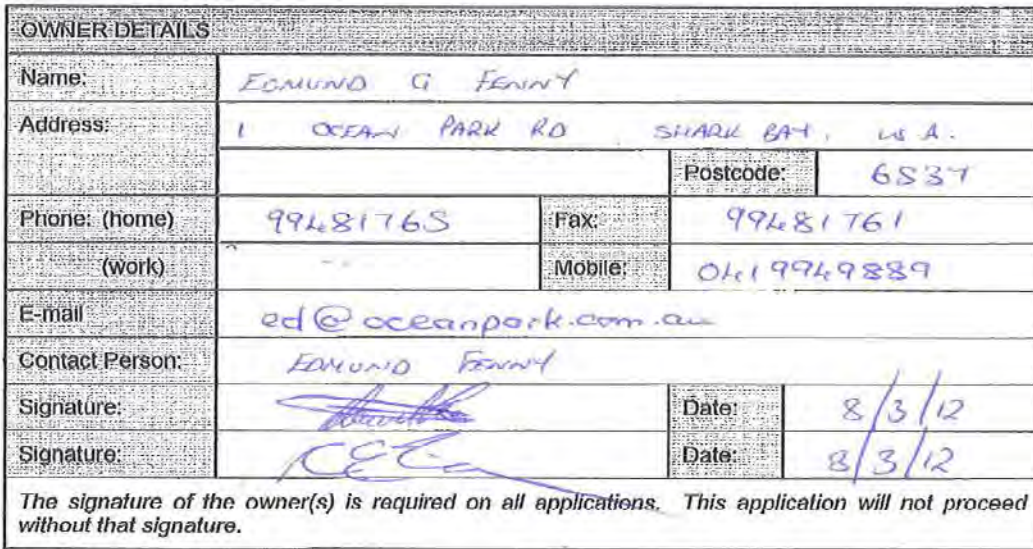 OWNER DETAILS
Name: EDMUND G FENNY
Address: 1 OCEAN PARK RD SHARK BAY, W A.
Postcode: 6537
Phone: (home) 99481765 Fax: 99481761
(work) -- Mobile: 0419949889
E-mail ed@oceanpark.com.au
Contact Person: EDMUND FENNY
Signature: Date: 8/3/12
Signature: Date: 8/3/12
The signature of the owner(s) is required on all applications. This application will not proceed
without that signature.